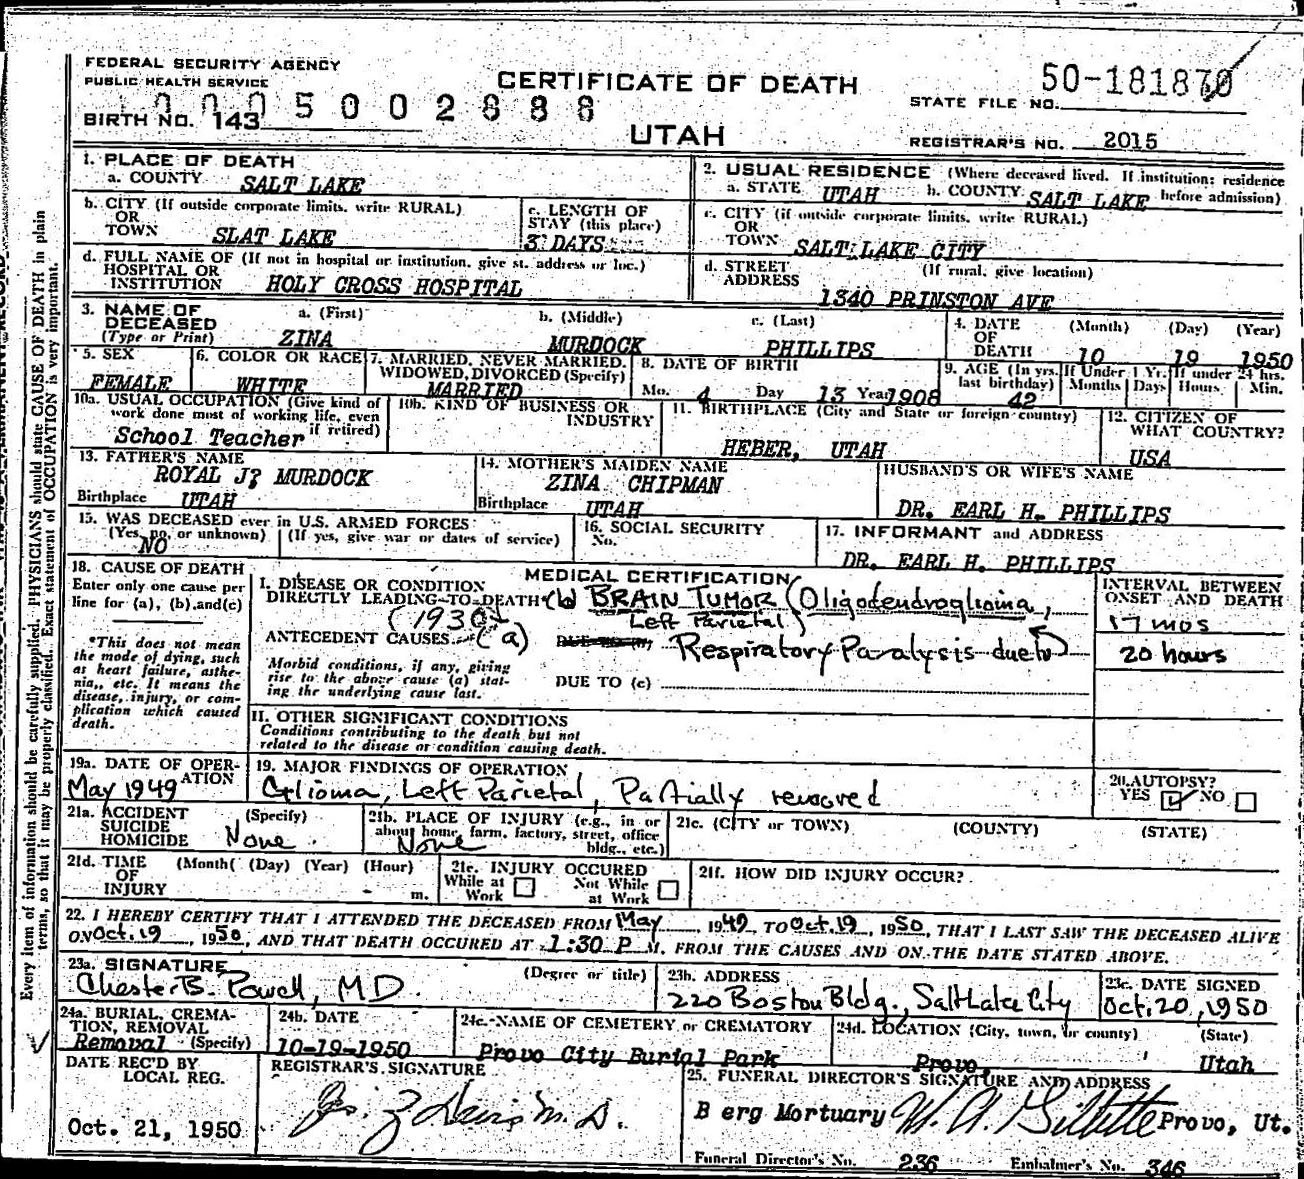 FEDERAL SECURITY AGENCY
PUBLIC HEALTH SERVICE
CERTIFICATE OF DEATH
50-181870
STATE FILE NO.
0005002888
BIRTH NO. 143
UTAH
REGISTRAR'S NO. 2015
1. PLACE OF DEATH
a. COUNTY SALT LAKE
2. USUAL RESIDENCE (Where deceased lived. If institution: residence before admission)
a. STATE UTAH b. COUNTY SALT LAKE
b. CITY (If outside corporate limits, write RURAL)
OR
TOWN SLAT LAKE
c. LENGTH OF
STAY (this place)
3 DAYS
c. CITY (if outside corporate limits, write RURAL)
OR
TOWN SALT LAKE CITY
d. FULL NAME OF (If not in hospital or institution, give st. address or loc.)
HOSPITAL OR
INSTITUTION HOLY CROSS HOSPITAL
d. STREET (If rural, give location)
ADDRESS
1340 PRINSTON AVE
3. NAME OF
DECEASED
(Type or Print)
a. (First) b. (Middle) c. (Last)
ZINA MURDOCK PHILLIPS
4. DATE (Month) (Day) (Year)
OF
DEATH 10 19 1950
5. SEX
FEMALE
6. COLOR OR RACE
WHITE
7. MARRIED, NEVER MARRIED,
WIDOWED, DIVORCED (Specify)
MARRIED
8. DATE OF BIRTH
Mo. 4 Day 13 Year 1908
9. AGE (In yrs.
last birthday)
42
If Under 1 Yr.
Months Days
If under 24 hrs.
Hours Min.
10a. USUAL OCCUPATION (Give kind of
work done most of working life, even
if retired)
School Teacher
10b. KIND OF BUSINESS OR
INDUSTRY
11. BIRTHPLACE (City and State or foreign country)
HEBER, UTAH
12. CITIZEN OF
WHAT COUNTRY?
USA
13. FATHER'S NAME
ROYAL J? MURDOCK
Birthplace UTAH
14. MOTHER'S MAIDEN NAME
ZINA CHIPMAN
Birthplace UTAH
HUSBAND'S OR WIFE'S NAME
DR. EARL H. PHILLIPS
15. WAS DECEASED ever in U.S. ARMED FORCES
(Yes, no, or unknown) (If yes, give war or dates of service)
NO
16. SOCIAL SECURITY
No.
17. INFORMANT and ADDRESS
DR. EARL H. PHILLIPS
18. CAUSE OF DEATH
Enter only one cause per
line for (a), (b), and (c)
*This does not mean
the mode of dying, such
as heart failure, asthe-
nia, etc. It means the
disease, injury, or com-
plication which caused
death.
MEDICAL CERTIFICATION
I. DISEASE OR CONDITION
DIRECTLY LEADING TO DEATH* (b) BRAIN TUMOR (Oligodendroglioma,
(1930) Left Parietal)
ANTECEDENT CAUSES (a) DUE TO (b) Respiratory Paralysis due to
Morbid conditions, if any, giving
rise to the above cause (a) stat-
ing the underlying cause last.
DUE TO (c)
INTERVAL BETWEEN
ONSET AND DEATH
17 mos
20 hours
II. OTHER SIGNIFICANT CONDITIONS
Conditions contributing to the death but not
related to the disease or condition causing death.
19a. DATE OF OPER-
ATION
May 1949
19. MAJOR FINDINGS OF OPERATION
Glioma, Left Parietal, Partially removed
20. AUTOPSY?
YES NO
21a. ACCIDENT (Specify)
SUICIDE
HOMICIDE None
21b. PLACE OF INJURY (e.g., in or
about home, farm, factory, street, office
bldg., etc.)
None
21c. (CITY or TOWN) (COUNTY) (STATE)
21d. TIME (Month) (Day) (Year) (Hour)
OF
INJURY m.
21e. INJURY OCCURED
While at Work Not While at Work
21f. HOW DID INJURY OCCUR?
22. I HEREBY CERTIFY THAT I ATTENDED THE DECEASED FROM May, 1949, TO Oct. 19, 1950, THAT I LAST SAW THE DECEASED ALIVE
ON Oct. 19, 1950, AND THAT DEATH OCCURED AT 1:30 P M. FROM THE CAUSES AND ON THE DATE STATED ABOVE.
23a. SIGNATURE (Degree or title)
Chester B. Powell, MD.
23b. ADDRESS
220 Boston Bldg., Salt Lake City
23c. DATE SIGNED
Oct. 20, 1950
24a. BURIAL, CREMA-
TION, REMOVAL
Removal (Specify)
24b. DATE
10-19-1950
24c. NAME OF CEMETERY or CREMATORY
Provo City Burial Park
24d. LOCATION (City, town, or county) (State)
Provo, Utah
DATE REC'D BY
LOCAL REG.
Oct. 21, 1950
REGISTRAR'S SIGNATURE
M.D.
25. FUNERAL DIRECTOR'S SIGNATURE AND ADDRESS
Berg Mortuary W. A. Gillette Provo, Ut.
Funeral Director's No. 236 Embalmer's No. 346
Every item of information should be carefully supplied. PHYSICIANS should state CAUSE OF DEATH in plain
terms, so that it may be properly classified. Exact statement of OCCUPATION is very important.